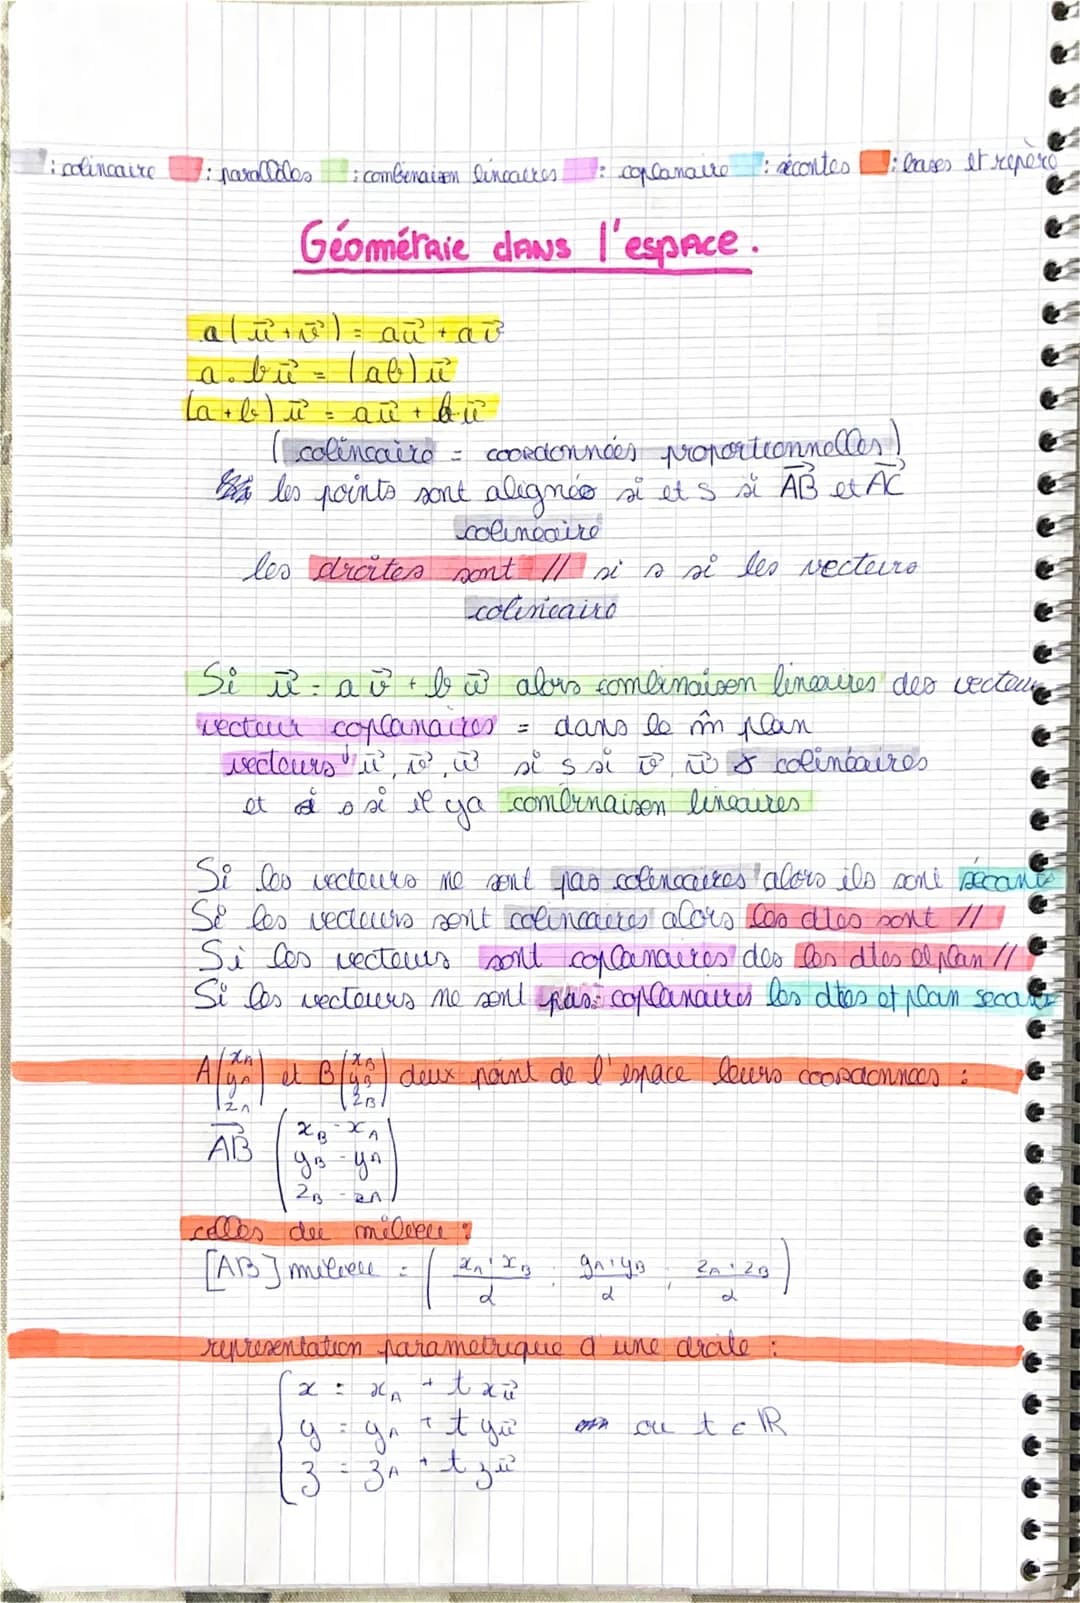 : colineaire : parallèles : combinaison lineaires : coplanaire : sécantes : bases et repère
Géométrie dans l'espace.
a(u⃗+v⃗) = au⃗ + av⃗
a.bu⃗ = (ab)u⃗
(a+b)u⃗ = au⃗ + bu⃗
(colineaire = coordonnées proportionnelles)
les points sont alignés si et s si AB⃗ et AC⃗
colineaire
les droites sont // si s si les vecteurs
colineaire
Si u⃗ = av⃗ + bw⃗ alors combinaison lineaires des vecteurs
vecteur coplanaires = dans le m̂ plan
vecteurs u⃗, v⃗, w⃗ si s si v⃗, w⃗ colinéaires
et s si il ya combinaison lineaires
Si les vecteurs ne sont pas colineaires alors ils sont sécants
Si les vecteurs sont colineaires alors les dtes sont //
Si les vecteurs sont coplanaires des les dtes et plan //
Si les vecteurs ne sont pas coplanaires les dtes et plan secants
A(xA yA zA) et B(xB yB zB) deux point de l'espace leurs coordonnees :
AB⃗ (xB - xA
yB - yA
zB - zA)
celles du milieu :
[AB] milieu = ((xA + xB)/2 ; (yA + yB)/2 ; (zA + zB)/2)
representation parametrique d'une droite :
{ x = xA + t xu⃗
y = yA + t yu⃗ ou t ∈ ℝ
z = zA + t zu⃗